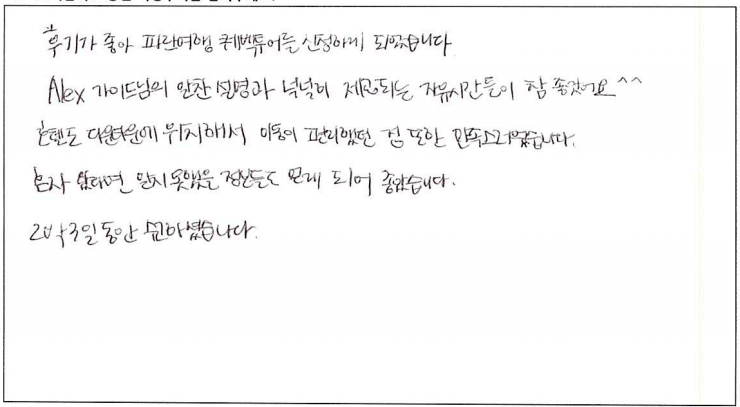 후기가 좋아 파란여행 퀘벡투어를 신청하게 되었습니다
Alex 가이드님의 알찬 설명과 넉넉히 제공되는 자유시간들이 참 좋았어요^^
호텔도 다운타운에 위치해서 이동이 편리했던 점 또한 만족스러웠습니다.
혼자 왔다면 알지 못했을 정보들도 알게 되어 좋았습니다.
2박3일동안 수고하셨습니다.